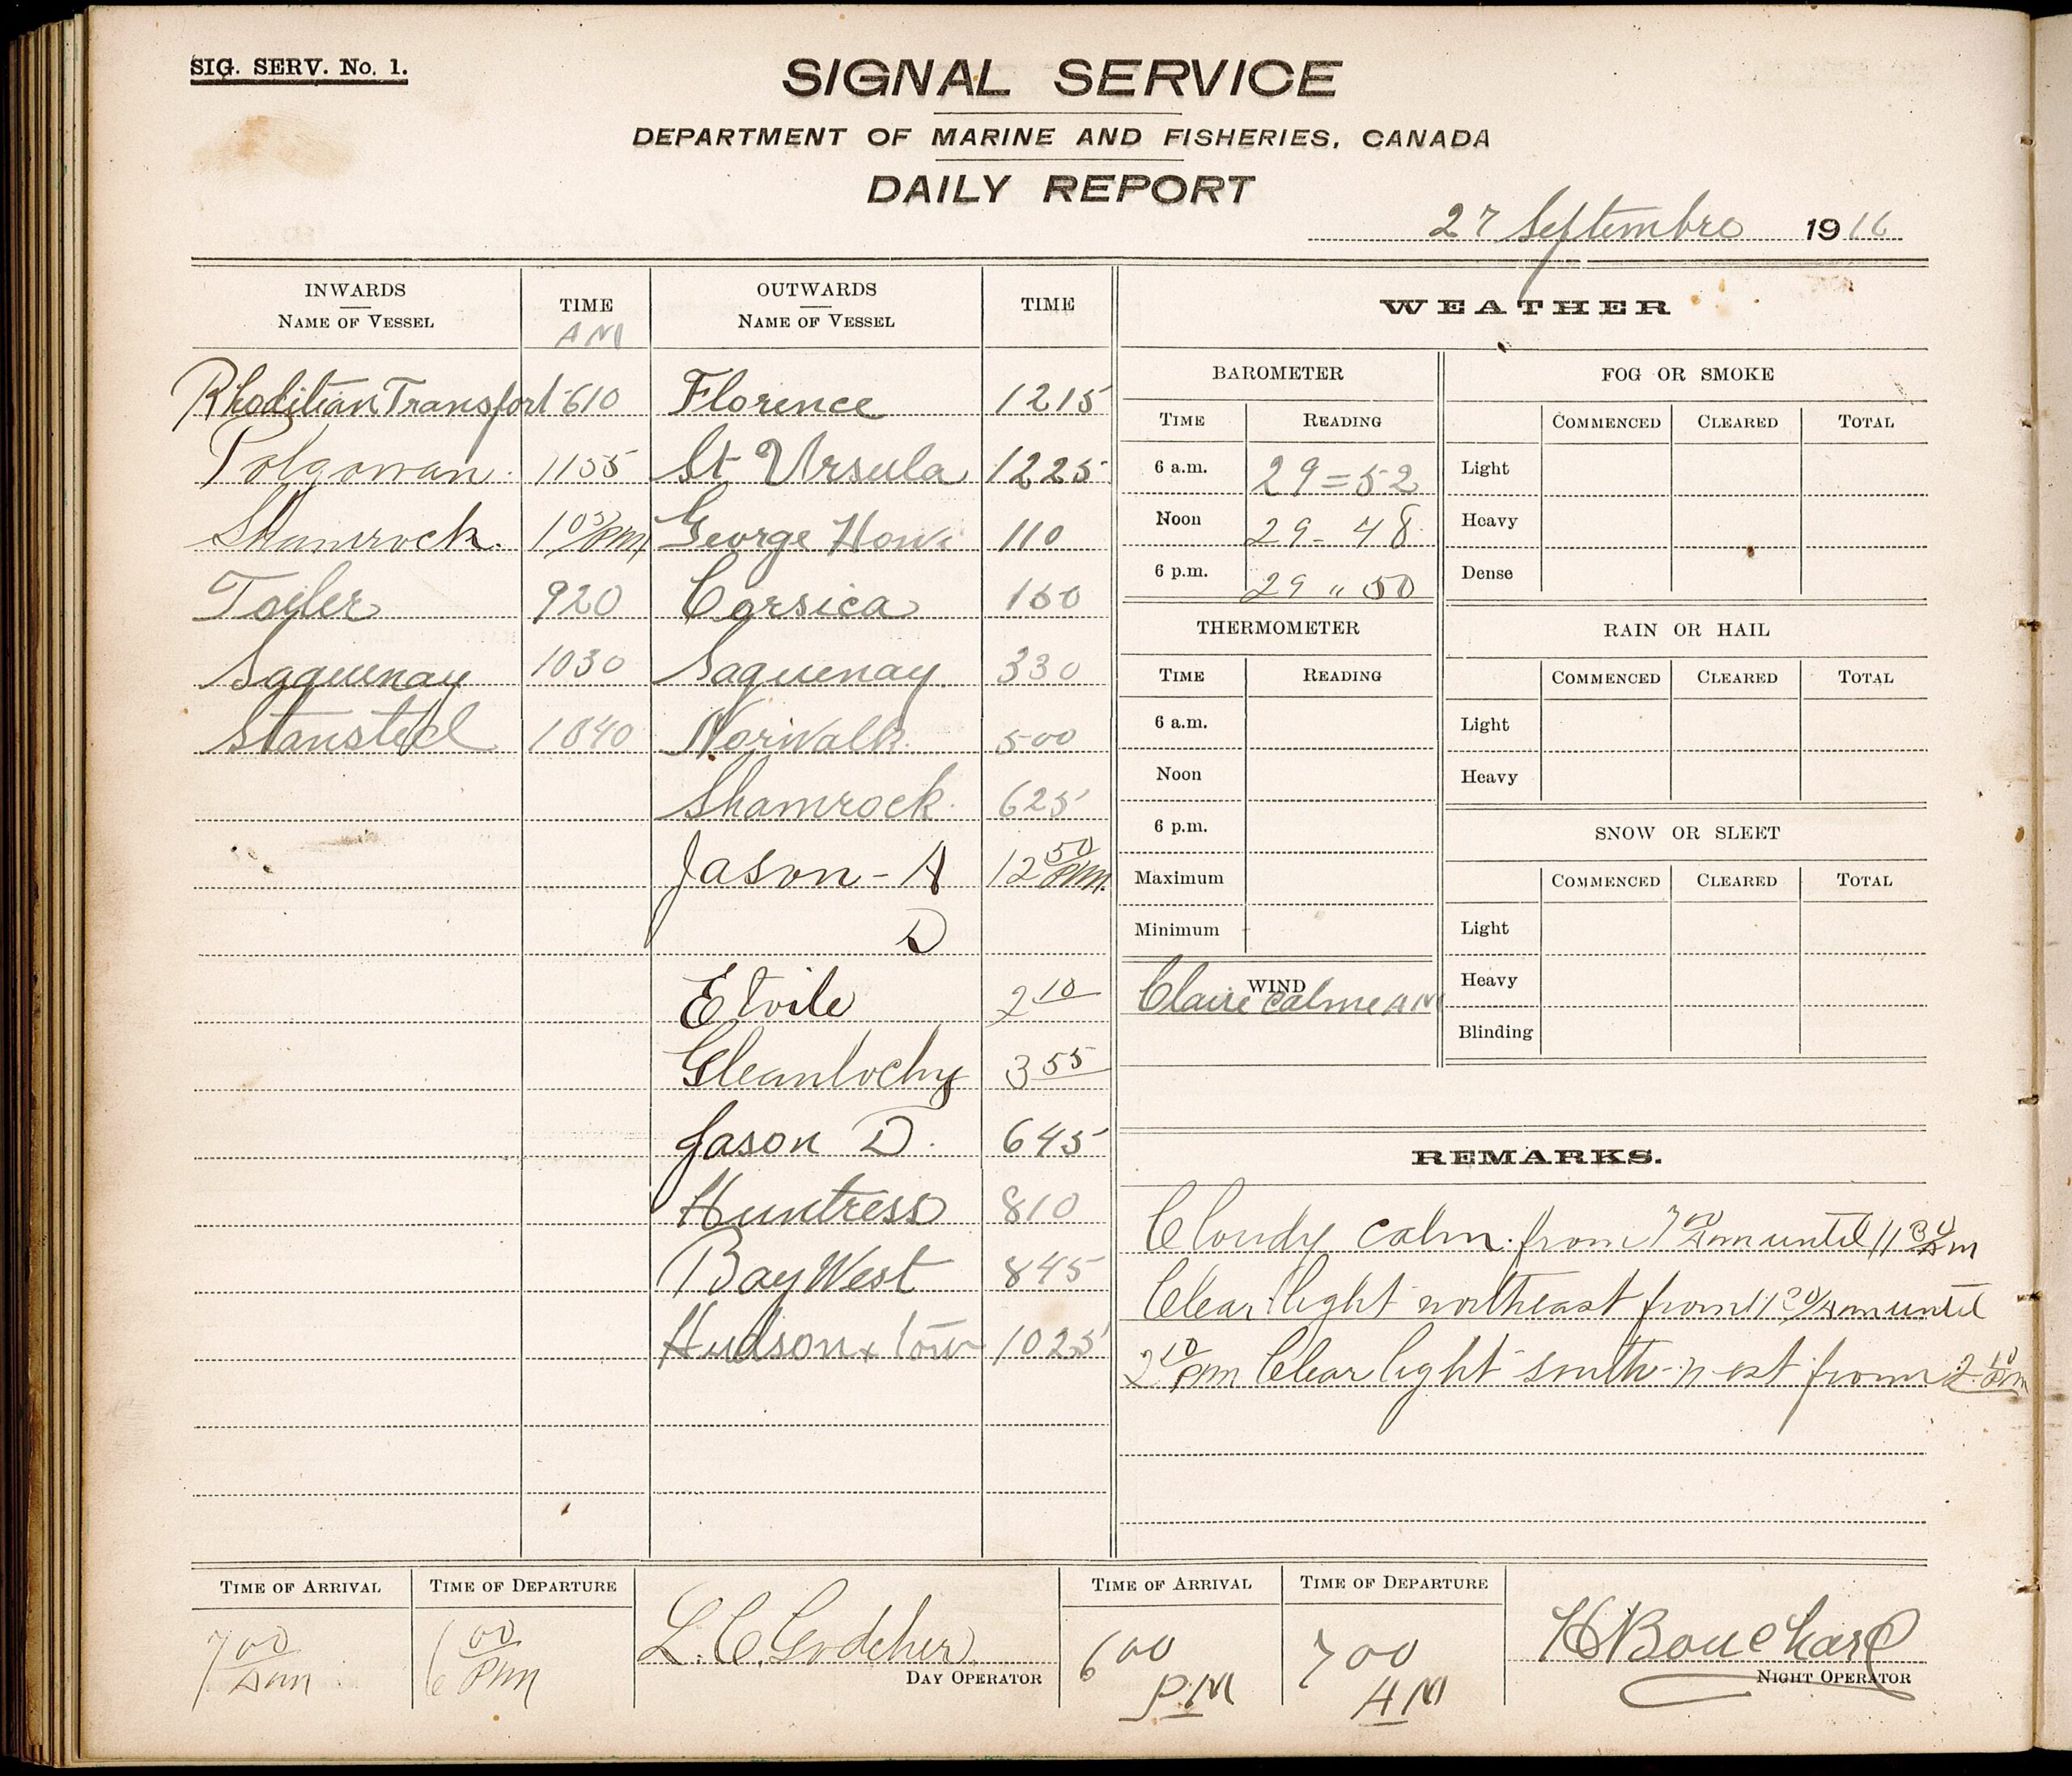 SIG. SERV. No. 1.
SIGNAL SERVICE
DEPARTMENT OF MARINE AND FISHERIES, CANADA
DAILY REPORT
27 Septembre 1916
INWARDS
NAME OF VESSEL
TIME
AM
OUTWARDS
NAME OF VESSEL
TIME
Rhoditian Transport 610 Florence 1215
Polgowan 1155 St Ursula 1225
Shamrock. 1 05/PM George Howe 110
Toiler 920 Corsica 150
Saguenay 1030 Saguenay 330
Stansted 1040 Norwalk 500
Shamrock 625
Jason - A 12 50/PM
D
Etoile 2 10
Gleanlochy 3 55
Jason D. 645
Huntress 810
Bay West 845
Hudson + tow 1025
WEATHER
BAROMETER
TIME READING
6 a.m. 29=52
Noon 29-48
6 p.m. 29 " 50
THERMOMETER
TIME READING
6 a.m.
Noon
6 p.m.
Maximum
Minimum
WIND
Claire Calme AM
FOG OR SMOKE
COMMENCED CLEARED TOTAL
Light
Heavy
Dense
RAIN OR HAIL
COMMENCED CLEARED TOTAL
Light
Heavy
SNOW OR SLEET
COMMENCED CLEARED TOTAL
Light
Heavy
Blinding
REMARKS.
Cloudy calm. from 7 00/Am until 11 30/Am
Clear light northeast from 11 30/Am until
2 10/Pm Clear light south-west from 2 10/Pm
TIME OF ARRIVAL TIME OF DEPARTURE
7 00/Am 6 00/Pm
DAY OPERATOR
TIME OF ARRIVAL TIME OF DEPARTURE
6 00 PM 7 00 AM
H Bouchard
NIGHT OPERATOR